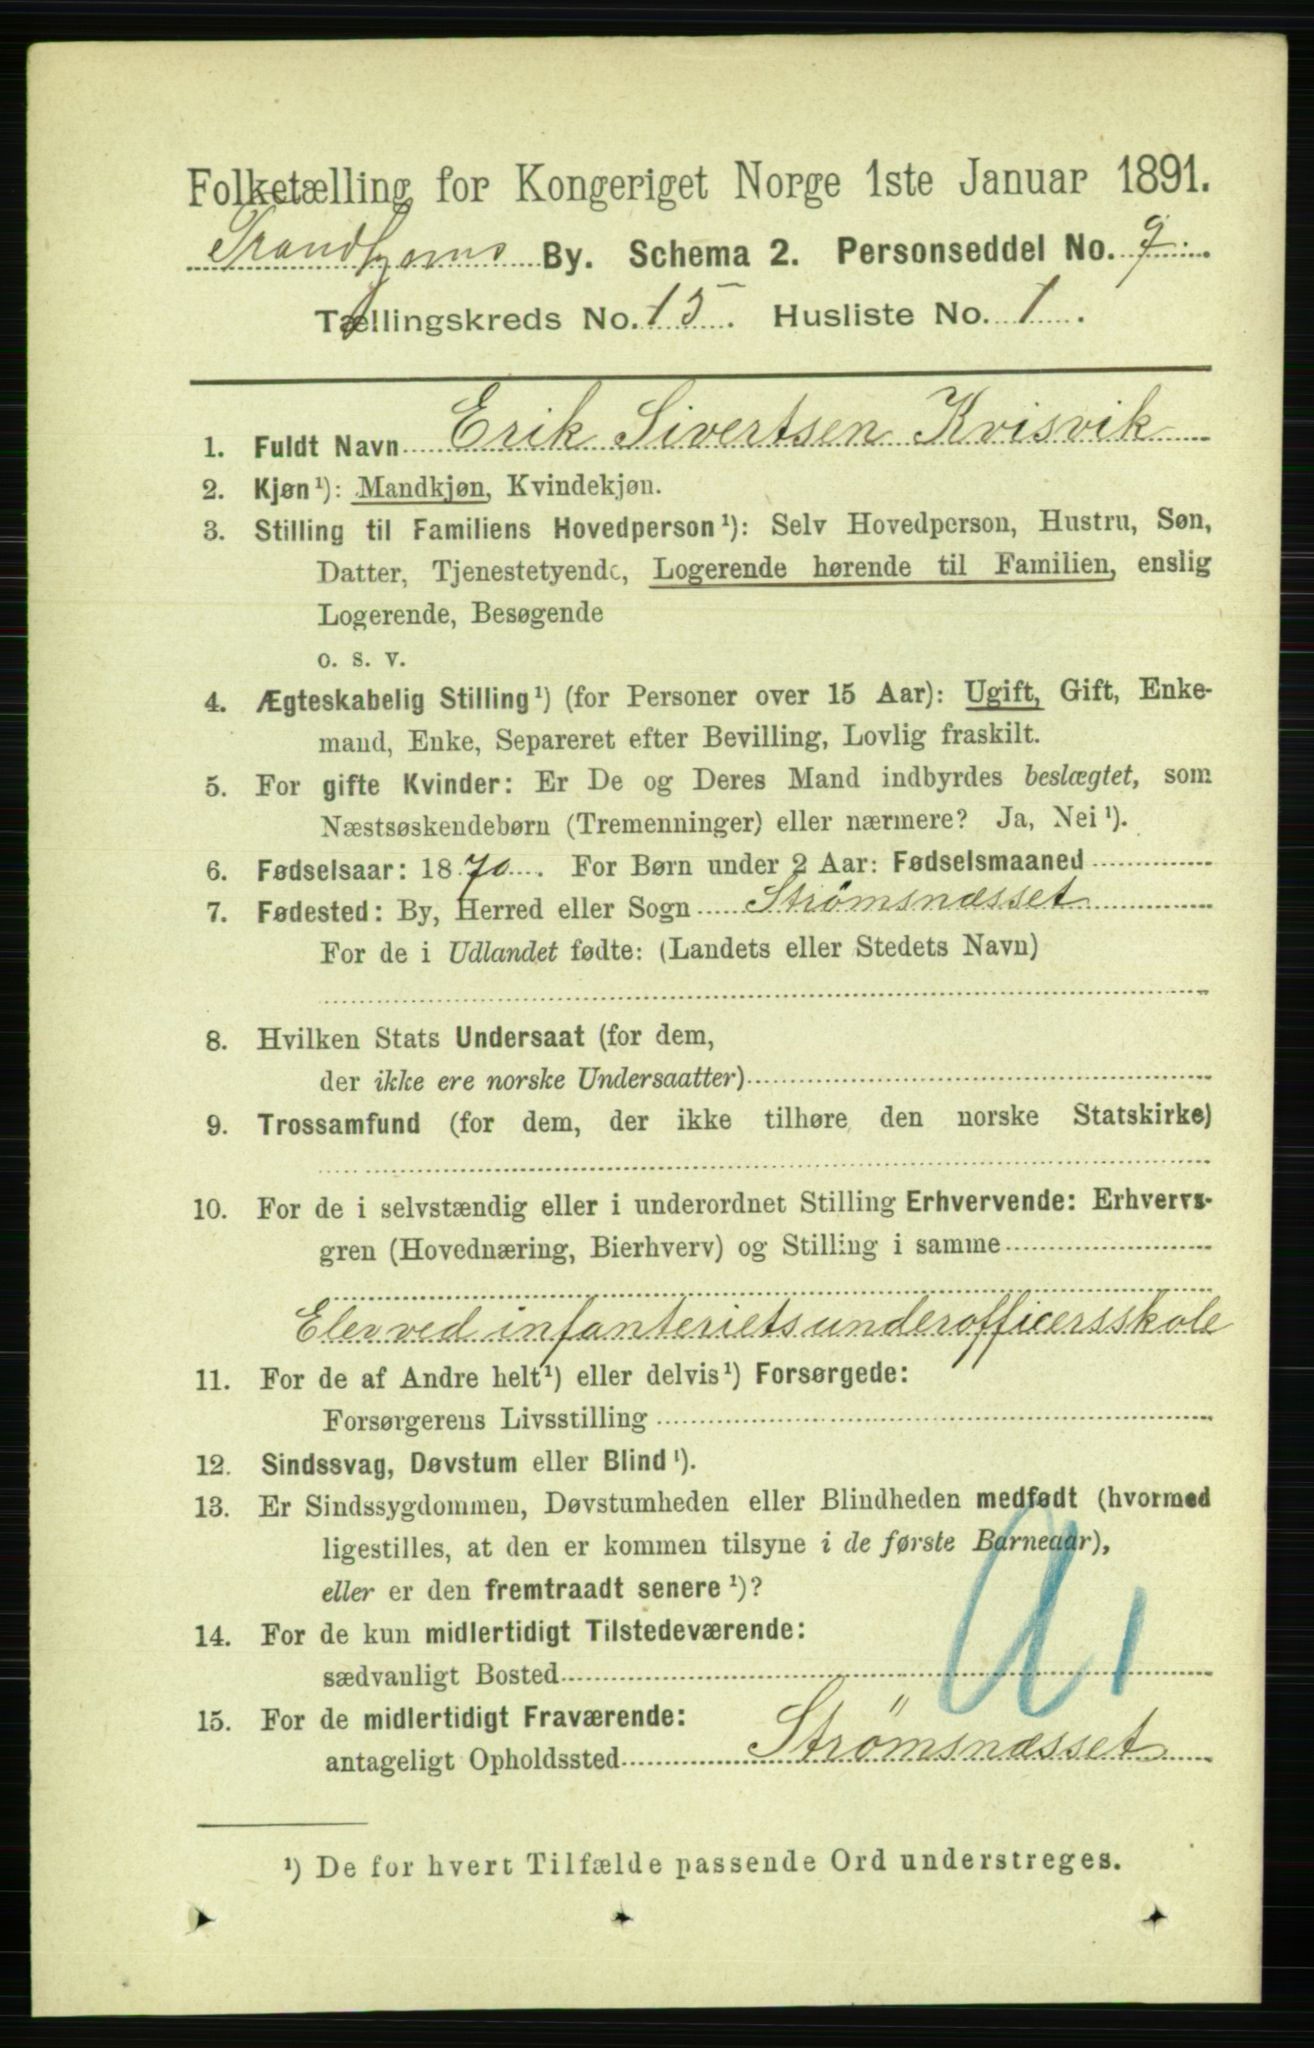 Folketælling for Kongeriget Norge 1ste Januar 1891.
Trondhjems By. Schema 2. Personseddel No. 9.
Tællingskreds No. 15. Husliste No. 1.
1. Fuldt Navn Erik Sivertsen Kvisvik
2. Kjøn¹): Mandkjøn, Kvindekjøn.
3. Stilling til Familiens Hovedperson¹): Selv Hovedperson, Hustru, Søn,
Datter, Tjenestetyende, Logerende hørende til Familien, enslig
Logerende, Besøgende
o. s. v.
4. Ægteskabelig Stilling¹) (for Personer over 15 Aar): Ugift, Gift, Enke-
mand, Enke, Separeret efter Bevilling, Lovlig fraskilt.
5. For gifte Kvinder: Er De og Deres Mand indbyrdes beslægtet, som
Næstsøskendebørn (Tremenninger) eller nærmere? Ja, Nei¹).
6. Fødselsaar: 1870. For Børn under 2 Aar: Fødselsmaaned
7. Fødested: By, Herred eller Sogn Strømsnæsset
For de i Udlandet fødte: (Landets eller Stedets Navn)
8. Hvilken Stats Undersaat (for dem,
der ikke ere norske Undersaatter)
9. Trossamfund (for dem, der ikke tilhøre den norske Statskirke)
10. For de i selvstændig eller i underordnet Stilling Erhvervende: Erhvervs-
gren (Hovednæring, Bierhverv) og Stilling i samme
Elev ved infanteriets underofficersskole
11. For de af Andre helt¹) eller delvis¹) Forsørgede:
Forsørgerens Livsstilling
12. Sindssvag, Døvstum eller Blind¹).
13. Er Sindssygdommen, Døvstumheden eller Blindheden medfødt (hvormed
ligestilles, at den er kommen tilsyne i de første Barneaar),
eller er den fremtraadt senere¹)?
14. For de kun midlertidigt Tilstedeværende:
sædvanligt Bosted
15. For de midlertidigt Fraværende:
antageligt Opholdssted Strømsnæsset
¹) De for hvert Tilfælde passende Ord understreges.